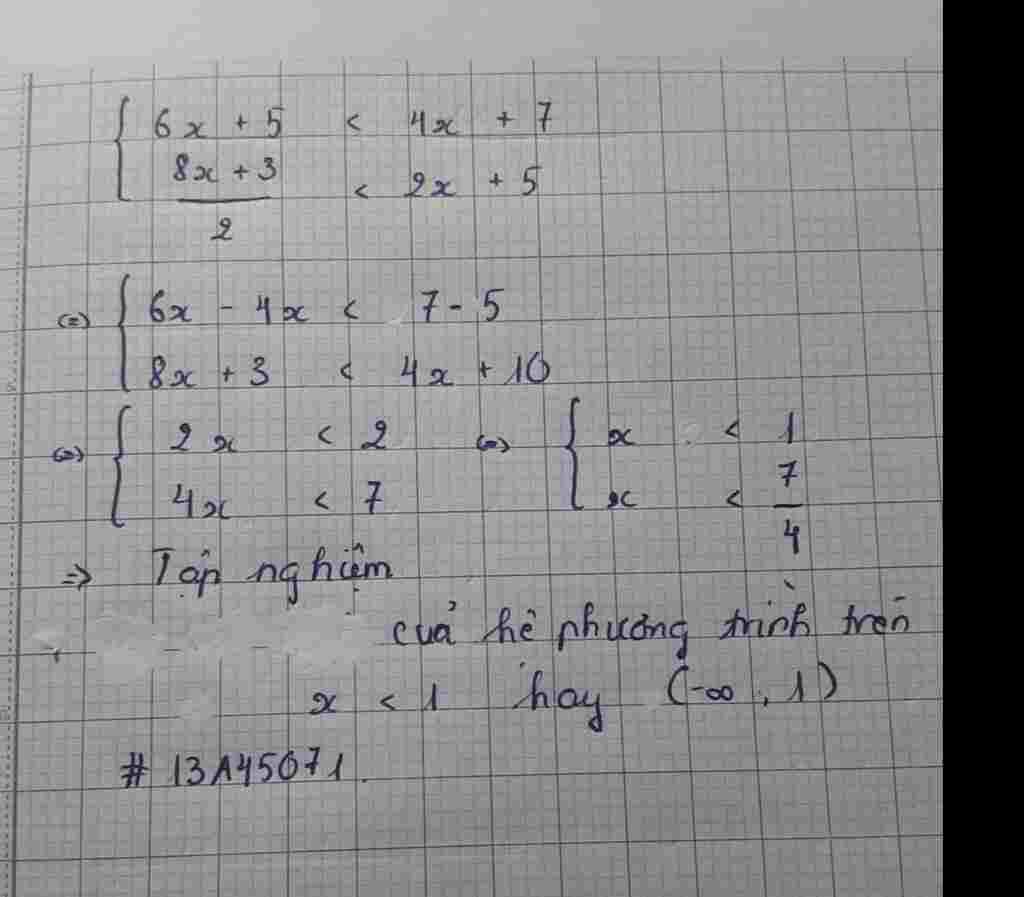 { 6x + 5 < 4x + 7
8x + 3 / 2 < 2x + 5
(=) { 6x - 4x < 7 - 5
8x + 3 < 4x + 10
(=) { 2x < 2 (=) { x < 1
4x < 7 x < 7/4
=> Tập nghiệm
của hệ phương trình trên
x < 1 hay (-∞, 1)
# 13A45071.